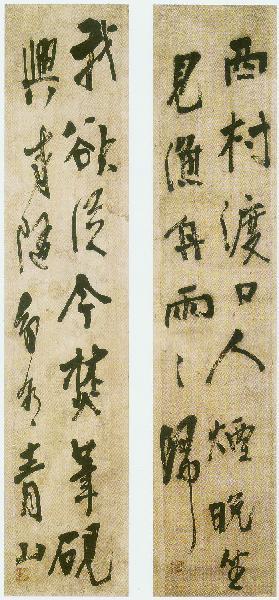 西村渡口人煙晚坐
見漁舟兩〻歸
我欲從今焚筆硯
興來隨 青山